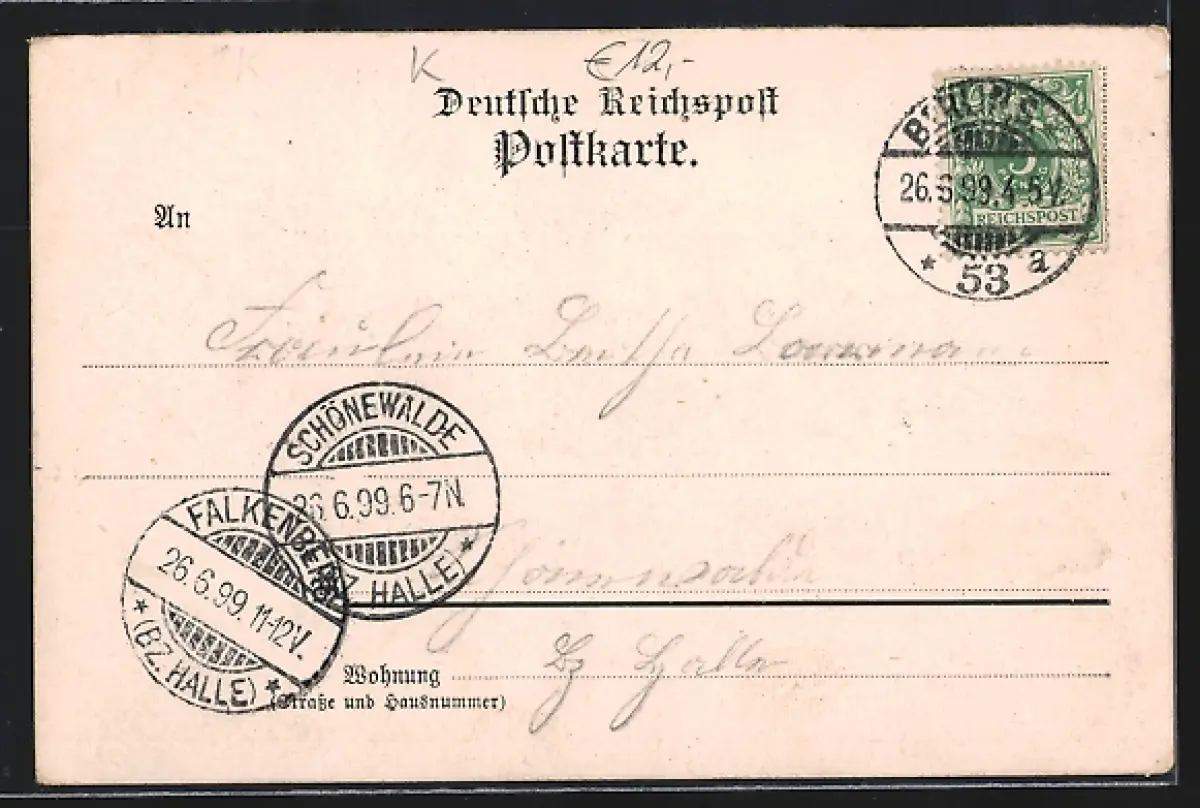 K €12,-
Deutsche Reichspost
Postkarte.
BERLIN S.
26.6.99.4-5V.
* 53 a
REICHSPOST
An
Fräulein Bertha
SCHÖNEWALDE
26.6.99.6-7N.
(BZ. HALLE) *
FALKENBERG
26.6.99.11-12V.
* (BZ. HALLE) *
Schönewalde
Bz Halle
Wohnung
(Straße und Hausnummer)